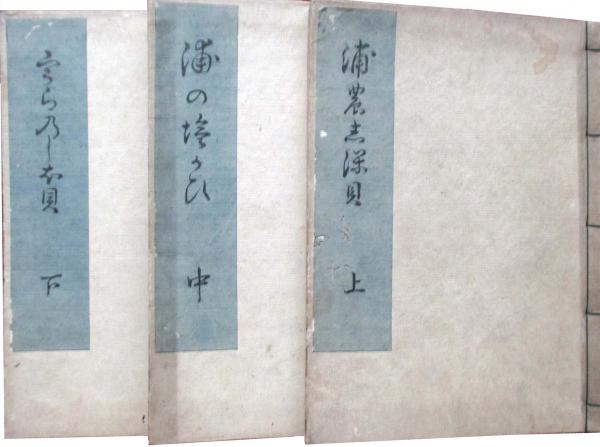 浦農志保貝 上
浦の塩かひ 中
うらのしほ貝 下